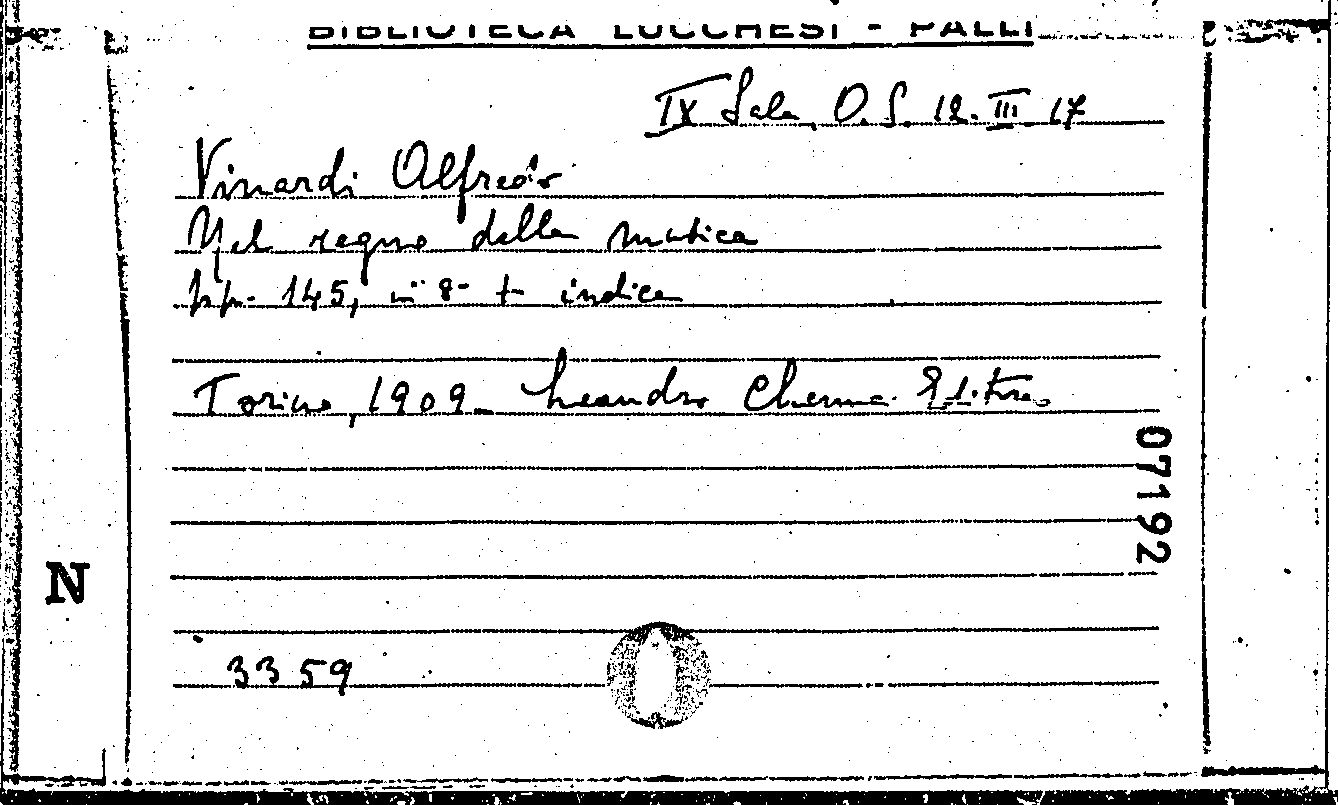 BIBLIOTECA LUCCHESI - PALLI
IX Sala, O.S. 12. III 17
Vinardi Alfredo
Nel regno della musica
pp. 145, in 8° + indice
Torino, 1909. Leandro Chenna Editore
07192
N
3359